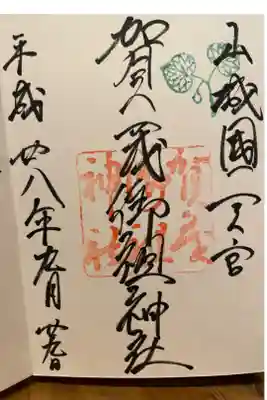 山城國一之宮
賀茂御祖神社
賀茂御祖神社
平成廿八年九月